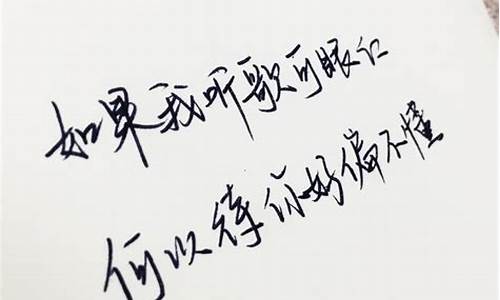 如果我听歌可眼红
何以待你好偏不懂